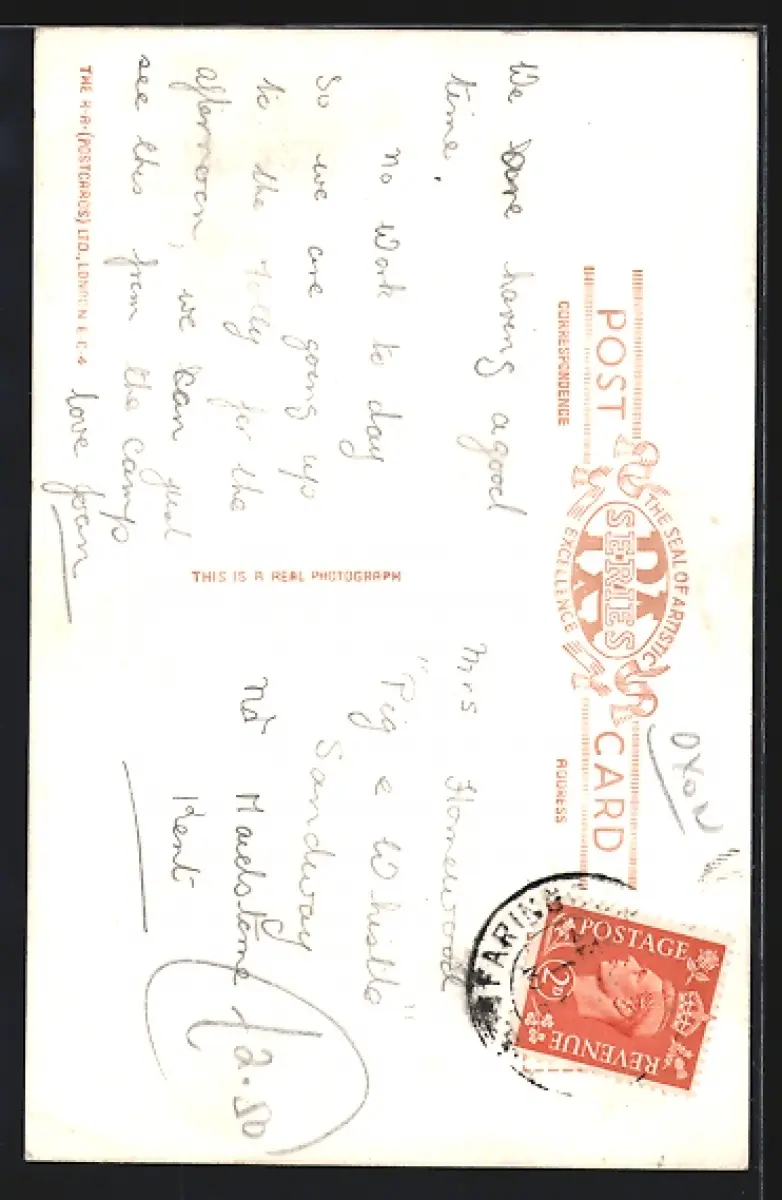 POST CARD
THE SEAL OF ARTISTIC EXCELLENCE
SERIES
CORRESPONDENCE
ADDRESS
OXON
We are having a good
time,
No work to day
So we are going up
to the Folly for the
afternoon, we can just
see this from the camp
love Joan
THE R.A. (POSTCARDS) LTD., LONDON E.C.4
THIS IS A REAL PHOTOGRAPH
Mrs Homewood
"Pig & Whistle"
Sandway
Nr Maidstone
Kent
£2.50
FARING
POSTAGE
2D
REVENUE